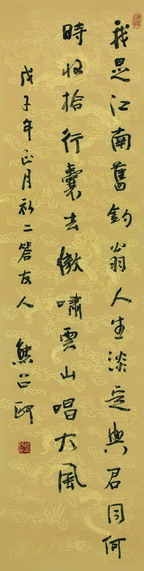 我是江南舊釣翁人生淡定與君同何
時收拾行囊去傲嘯雲山唱大風
戊子年正月初二答友人
熊召政